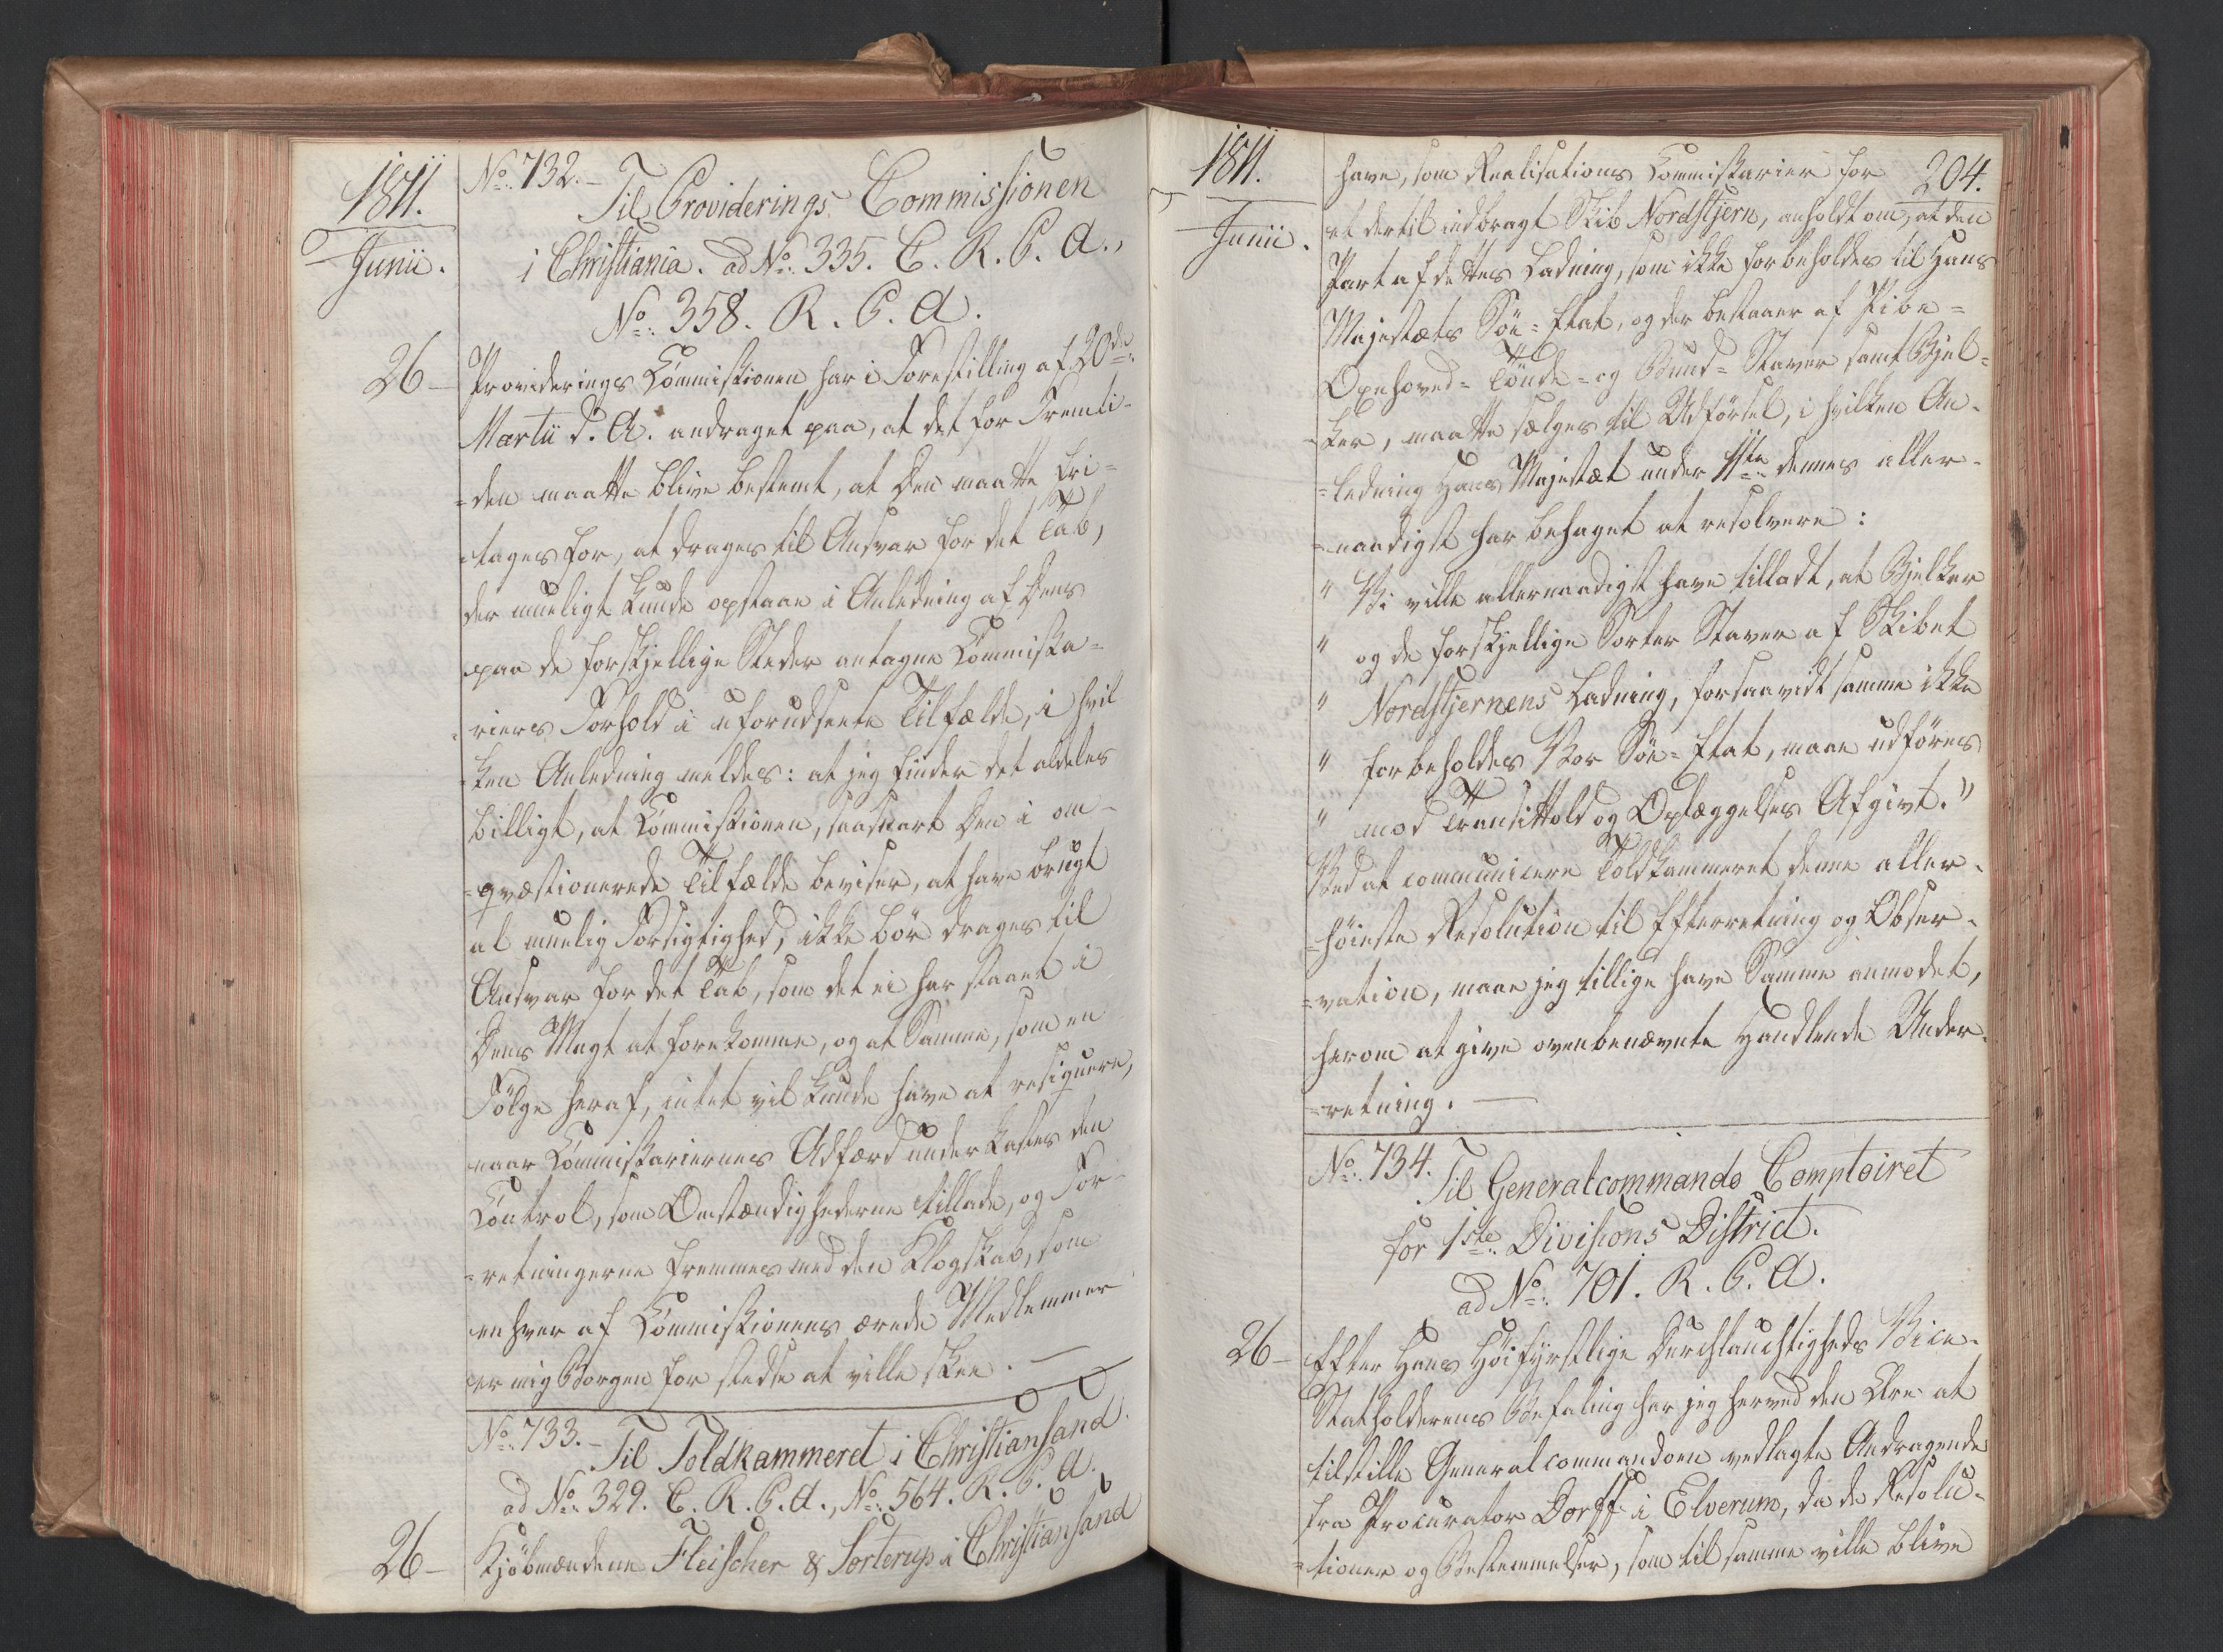 1811.
Junii.
No. 732.
Til Providerings Commissionen
i Christiania. ad No. 335. C. R. P. A.,
No. 358. R. P. A.
26 - Providerings Commissionen har i Forestilling af 20de
Martii d. A. andraget paa, at det for Fremti-
=den maatte blive bestemt, at Den maatte fri=
=tages for, at drages til Ansvar for det Tab,
der mueligt kunde opstaae i Anledning af Dens
paa de forskjellige Steder antagne Commissa=
=riers Forhold i uforudseete Tilfælde, i hvil
=ken Anledning meldes: at jeg finder det aldeles
billigt, at Commissionen, saasnart Den i om-
=qvæstionerede Tilfælde beviser, at have brugt
al muelig Forsigtighed, ikke bör drages til
Ansvar for det Tab, som det ei har staaet i
Dens Magt at forekomme, og at Samme, som en
Fölge heraf, intet vil kunde have at resiquere,
naar Commissariernes Adfærd underkastes den
Control, som Omstændighederne tillade, og For-
=retningerne fremmes med den Klogskab, som
enhver af Commissionens ærede Medlemmer
er mig Borgen for stedse at ville skee. —
No. 733. - Til Toldkammeret i Christiansand.
ad No. 329. C. R. P. A., No. 564. R. P. A.
26 - Kjöbmændene Fleischer & Sorterup i Christiansand
1811.
Junii.
204.
have, som Realisations Commissarier for
et dertil indbragt Skib Nordstjern, anholdt om, at den
Part af dettes Ladning, som ikke forbeholdes til Hans
Majestæts Söe=Etat, og der bestaaer af Pibe=
Oxehoved= Tönde= og Bund= Staver samt Bjel=
=ker, maatte sælges til Udförsel, i hvilken An-
=ledning Hans Majestæt under 11te dennes aller-
=naadigst har behaget at resolvere:
" Vi ville allernaadigst have tilladt, at Bjelker
" og de forskjellige Sorter Staver af Skibet
" Nordstjernens Ladning, forsaavidt samme ikke
" forbeholdes Vor Söe=Etat, maae udföres
" mod Transittold og Oplæggelses Afgivt."
Ved at communicere Toldkammeret denne aller-
=höieste Resolution til Efterretning og Obser-
=vation, maae jeg tillige have Samme anmodet,
herom at give ovenbenævnte Handlende Under-
=retning. —
No. 734.
Til Generalcommando Comptoiret
for 1ste Divisions District.
ad No. 701. R. P. A.
26 - Efter Hans Höifyrstlige Durchlauchtigheds Vice-
Statholderens Befaling har jeg herved den Ære at
tilstille Generalcommandoen vedlagte Andragende
fra Procurator Dorff i Elverum, da de Resolu-
=tioner og Bestemmelser, som til samme ville blive